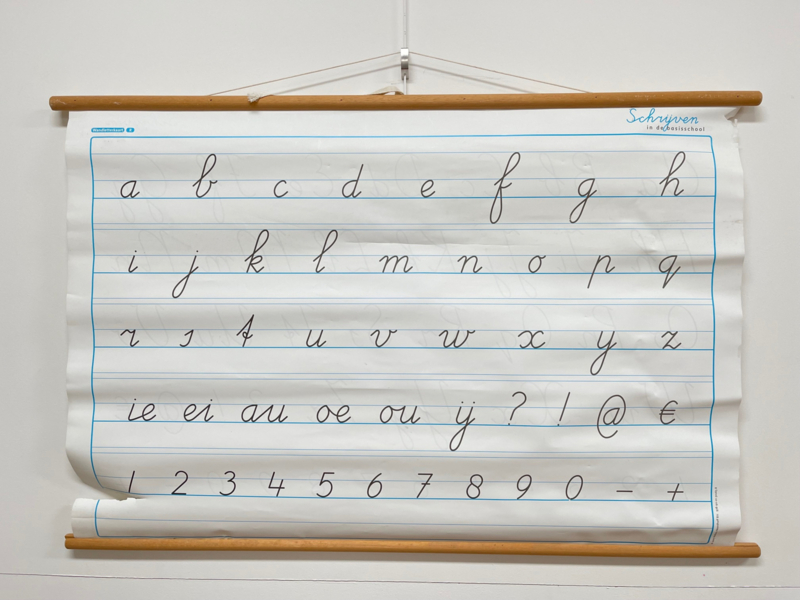 Schrijven
in de basisschool
a b c d e f g h
i j k l m n o p q
r s t u v w x y z
ie ei au oe ou ij ? ! @ €
1 2 3 4 5 6 7 8 9 0 - +